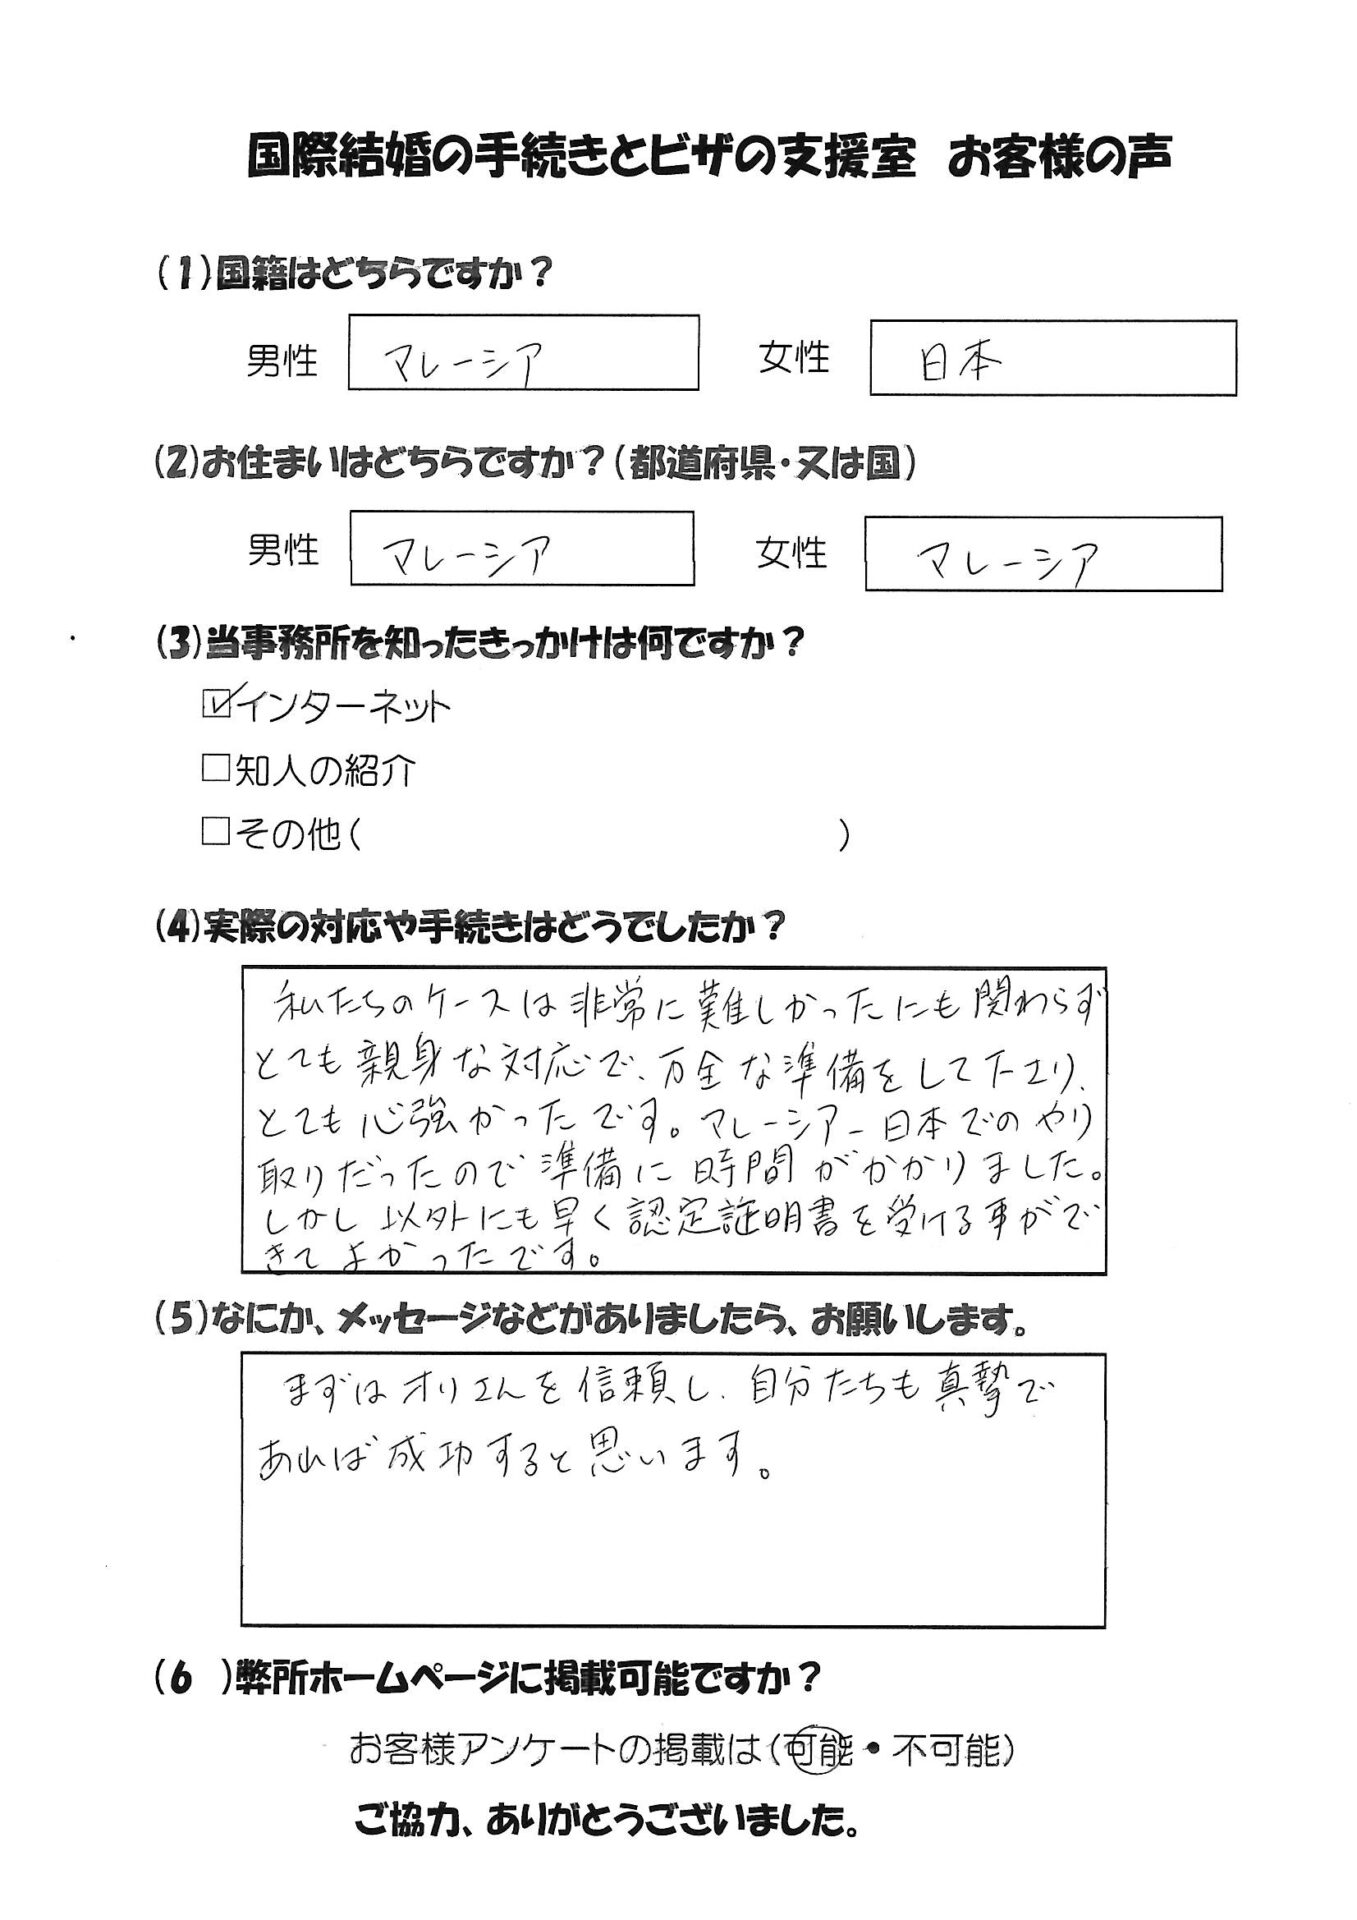 国際結婚の手続きとビザの支援室 お客様の声
(1)国籍はどちらですか？
男性 マレーシア 女性 日本
(2)お住まいはどちらですか？(都道府県・又は国)
男性 マレーシア 女性 マレーシア
(3)当事務所を知ったきっかけは何ですか？
☑インターネット
□知人の紹介
□その他( )
(4)実際の対応や手続きはどうでしたか？
私たちのケースは非常に難しかったにも関わらず
とても親身な対応で、万全な準備をして下さり、
とても心強かったです。マレーシア－日本でのやり
取りだったので準備に時間がかかりました。
しかし以外にも早く認定証明書を受ける事がで
きてよかったです。
(5)なにか、メッセージなどがありましたら、お願いします。
まずはオリエんを信頼し、自分たちも真摯で
あれば成功すると思います。
(6 )弊所ホームページに掲載可能ですか？
お客様アンケートの掲載は(可能・不可能)
ご協力、ありがとうございました。